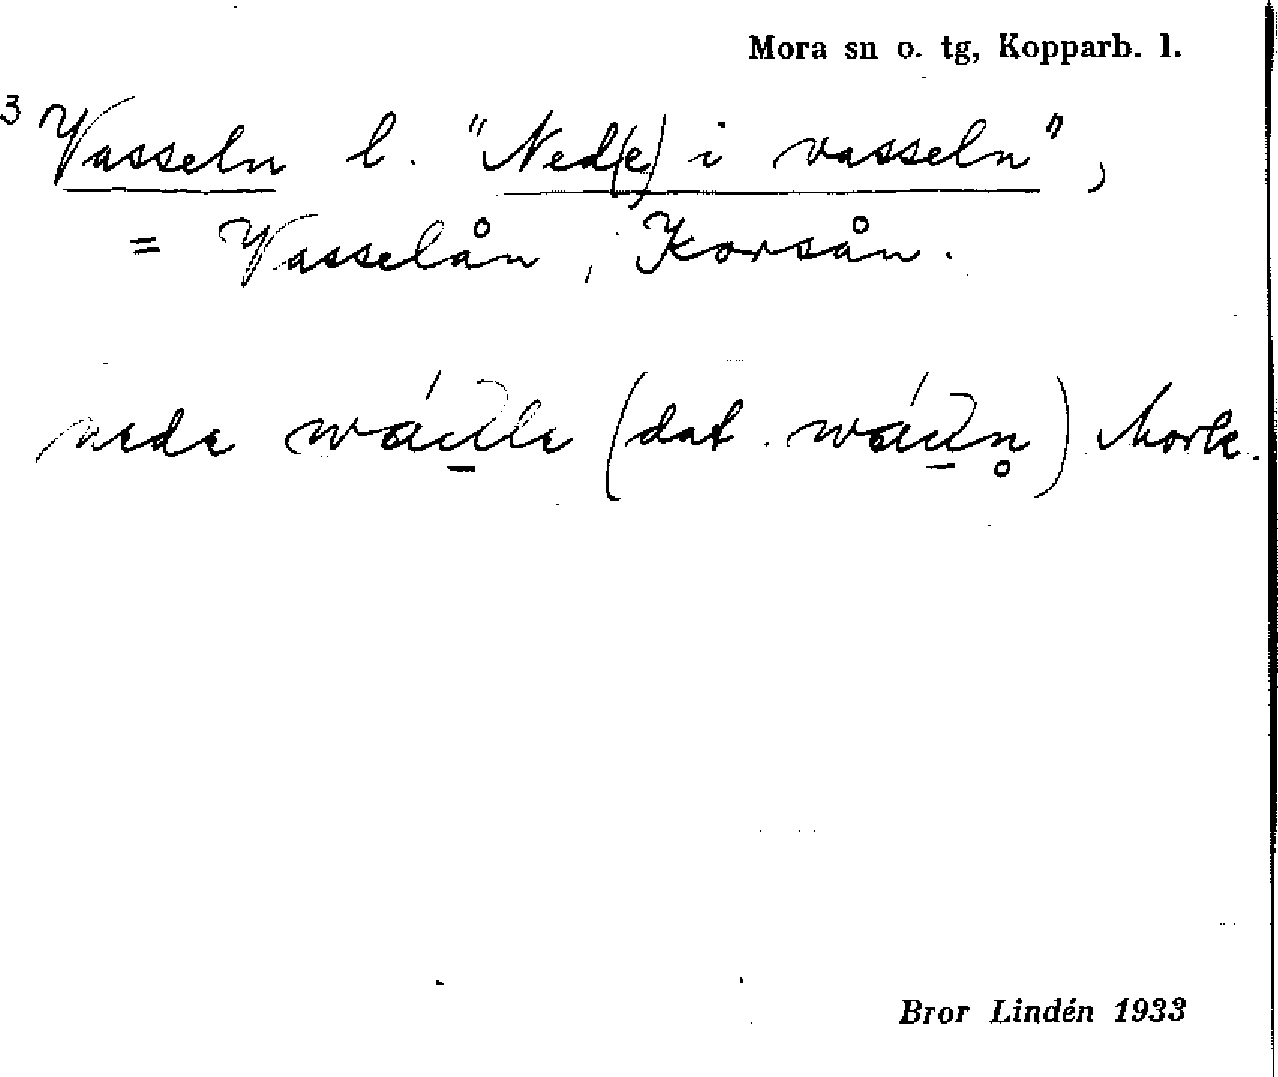 Mora sn o. tg, Kopparb. l.
3 Vasseln l. "Ned(e) i vasseln",
= Vasselån, Korsån.
nede (dat. ) Mork.
Bror Lindén 1933